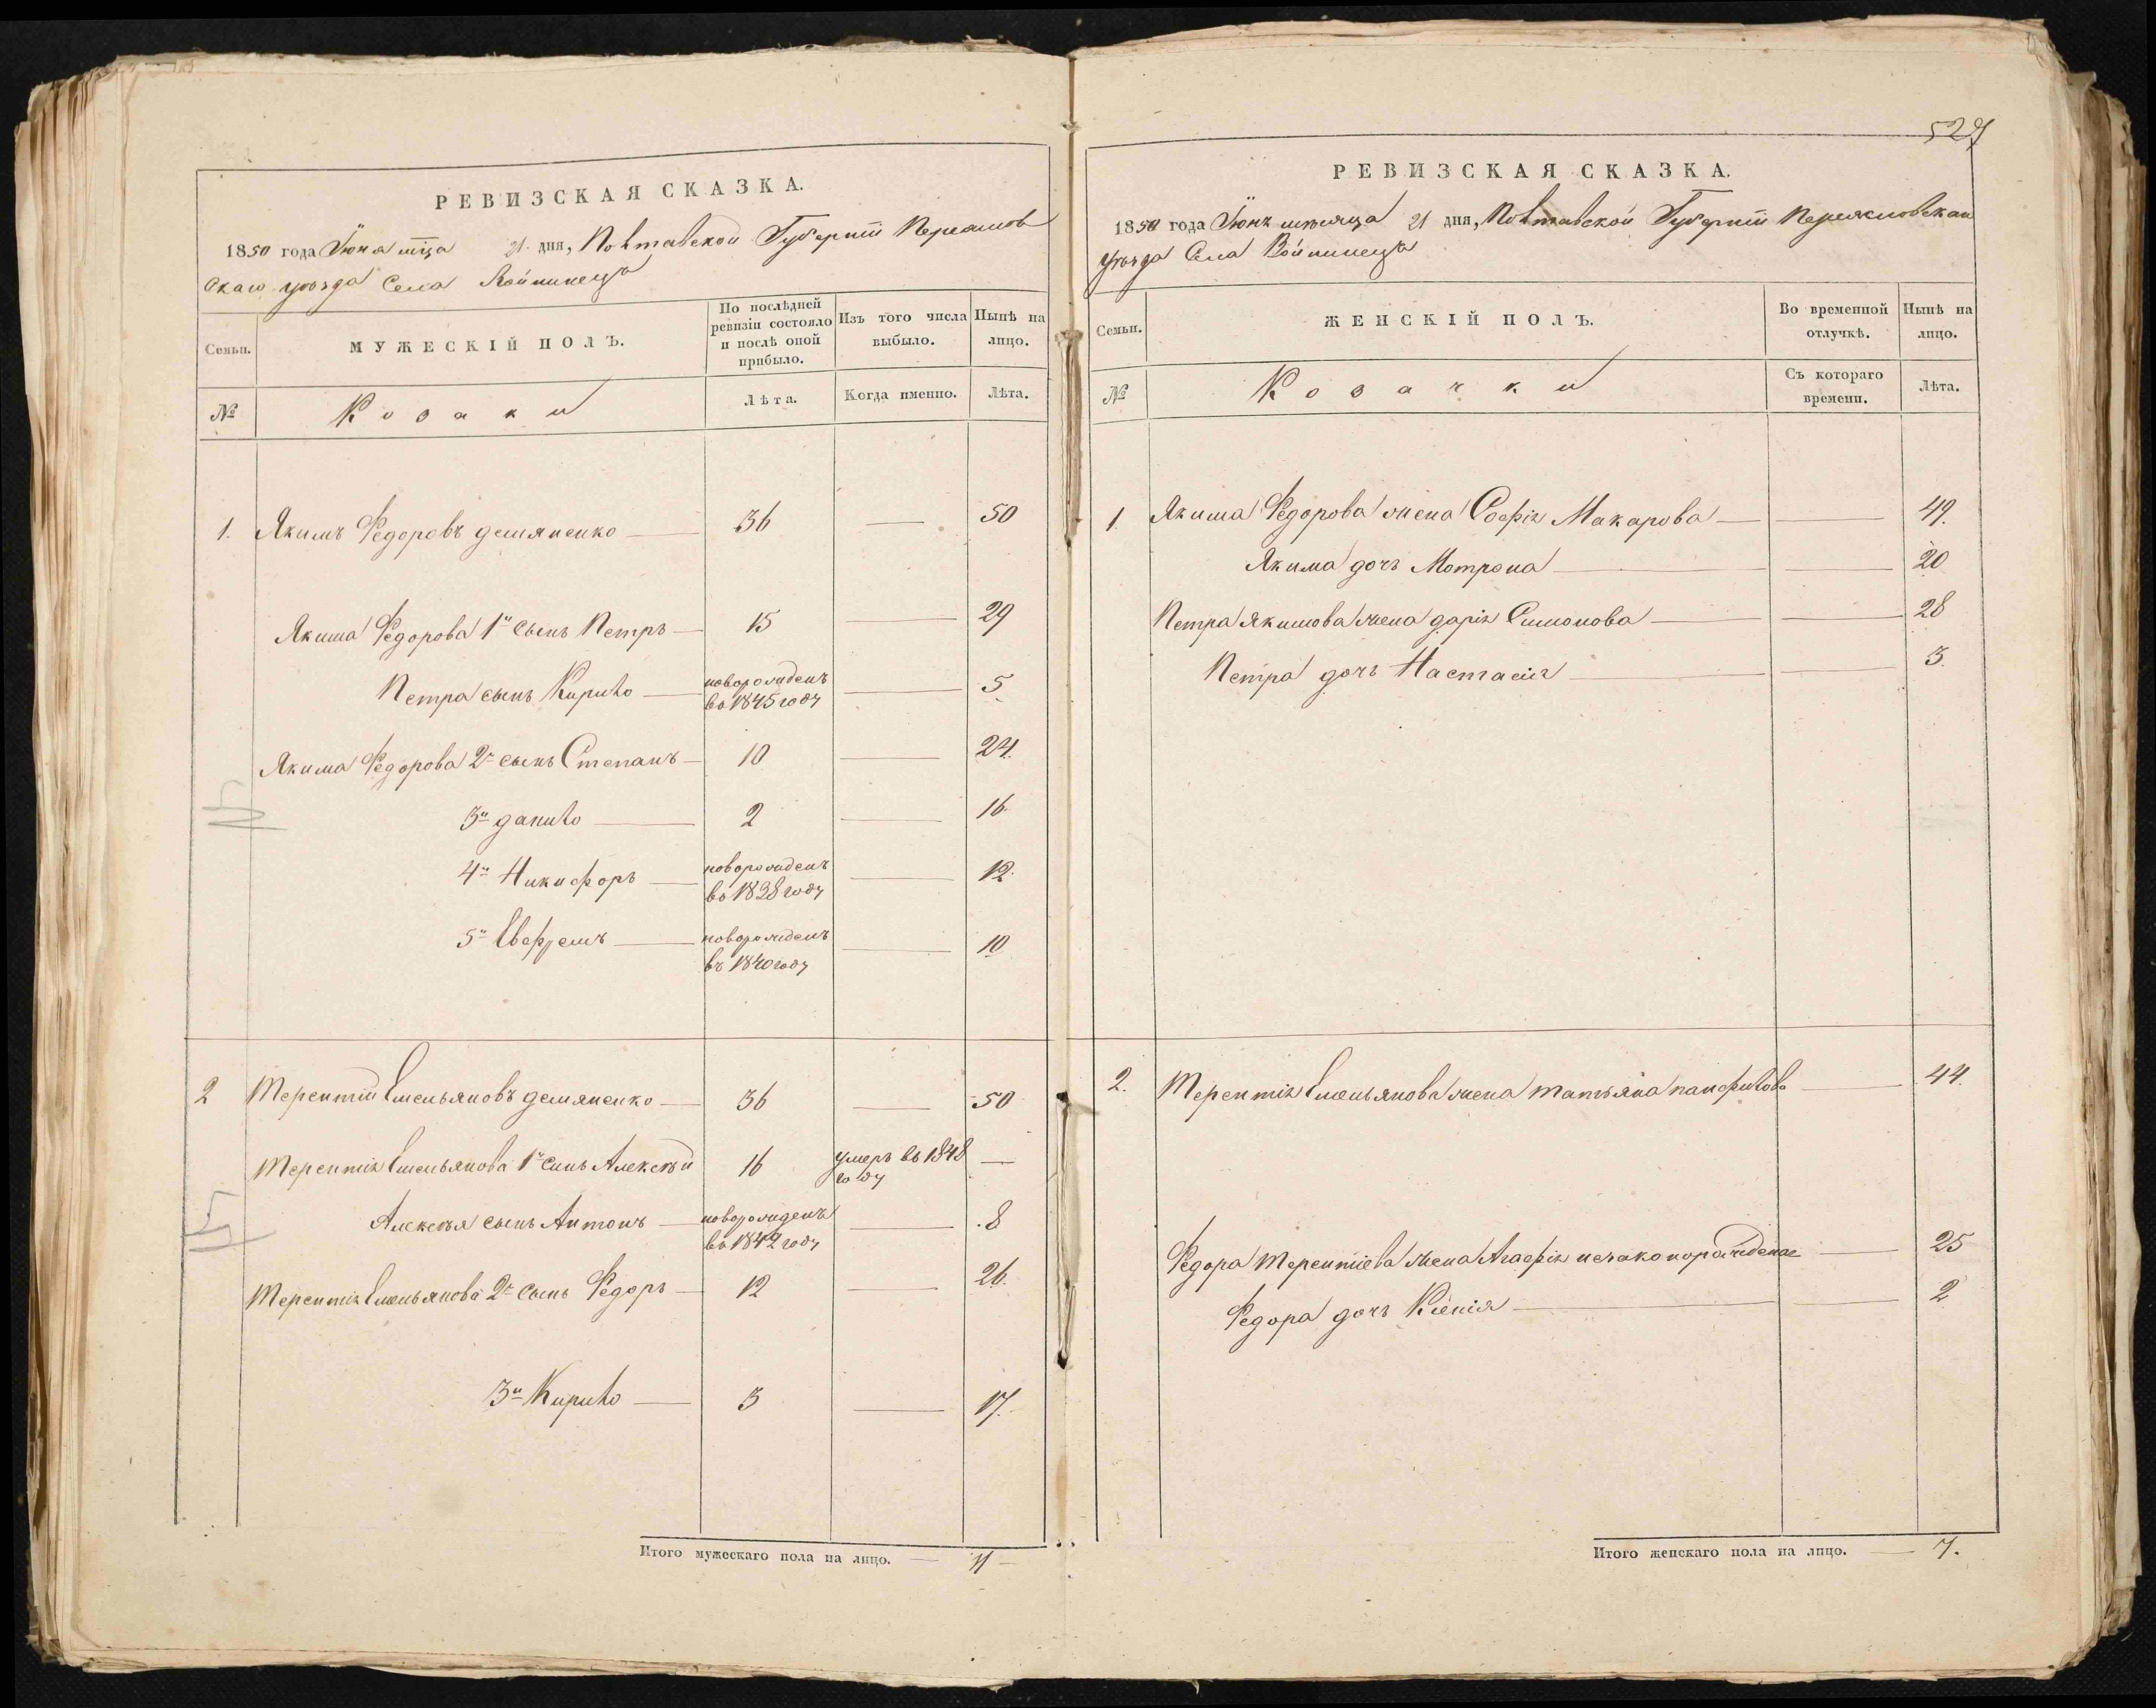 РЕВИЗСКАЯ СКАЗКА.
1850 года Іюня мца 21 дня, Полтавской Губерніи Переяслов
скаго уѣзда Села Войтинецъ
Семьи.
МУЖЕСКІЙ ПОЛЪ.
По послѣдней ревизіи состояло и послѣ оной прибыло.
Изъ того числа выбыло.
Нынѣ на лицо.
№
Козаки
Лѣта.
Когда именно.
Лѣта.
1. Якимъ Федоровъ демяненко — 36 — 50
Якима Федорова 1й сынъ Петръ — 15 — 29
Петра сынъ Кирило — новорожденъ — 5
въ 1845 году
Якима Федорова 2й сынъ Степанъ — 10 — 24.
3й данило — 2 — 16
4й Никифоръ — новорожденъ — 12.
въ 1838 году
5й Евфремъ — новорожденъ — 10
въ 1840 году
2 Терентій Емельяновъ демяненко — 36 — 50
Терентія Емельянова 1й синъ Алексѣй 16 умеръ въ 1848 —
году
Алексѣя сынъ Антонъ — новорожденъ — 8
въ 1842 году
Терентія Емельянова 2й сынъ Федоръ — 12 — 26.
3й Кирило — 3 — 17.
Итого мужескаго пола на лицо. — 11 —
527
РЕВИЗСКАЯ СКАЗКА.
1850 года Іюня мѣсяца 21 дня, Полтавской Губерніи Переясловскаго
уѣзда Села Войтинецъ
Семьи.
ЖЕНСКІЙ ПОЛЪ.
Во временной отлучкѣ.
Нынѣ на лицо.
№
Козачки
Съ котораго времени.
Лѣта.
1. Якима Федорова жена Софія Макарова — — 49.
Якима дочь Мотрона — — 20
Петра Якимова жена дарія Симонова — — 28
Петра дочь Настасія — — 3.
2. Терентія Емельянова жена татьяна панфилова — 44.
Федора Терентіева жена Агафія незаконорожденая — 25
Федора дочь Ксенія — — 2
Итого женскаго пола на лицо. — 7.